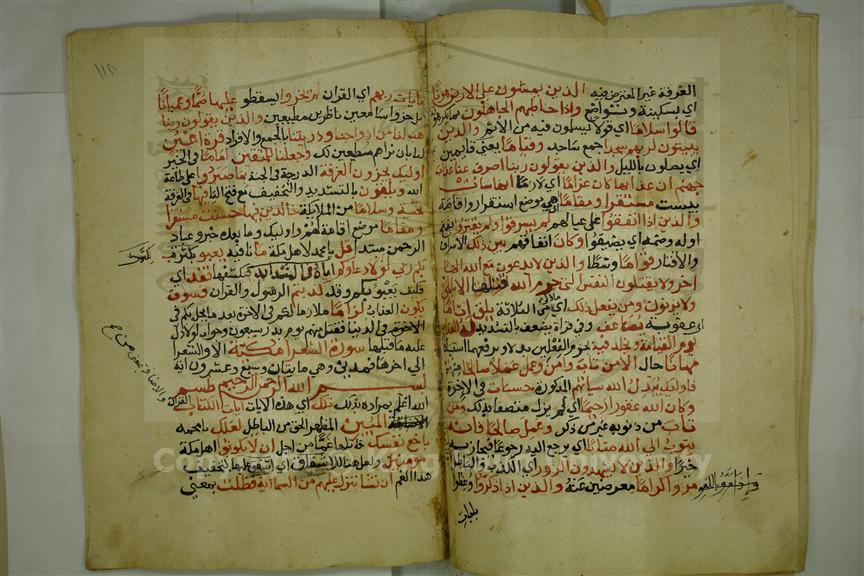 الغرفة غير المعترض فيه الذين يمشون على الارض هونا
اي بسكينة وتواضع واذا خاطبهم الجاهلون بما يكرهونه
قالوا سلاما اي قولا يسلمون فيه من الاثم والذين
يبيتون لربهم سجدا جمع ساجد وقياما يعني قايمين
اي يصلون بالليل والذين يقولون ربنا اصرف عنا عذاب
جهنم ان عذابها كان غراما اي لازما انها ساءت
بيست مستقرا ومقاما هي موضع استقرار واقامة
والذين اذا انفقوا على عيالهم لم يسرفوا ولم يقتروا بفتح
اوله وضمه اي يضيقوا وكان انفاقهم بين ذلك الاسراف
والاقتار قواما وسطا والذين لا يدعون مع الله الها
اخر ولا يقتلون النفس التي حرم الله قتلها الا بالحق
ولا يزنون ومن يفعل ذلك اي الثلاثة يلق اثاما
اي عقوبة يضاعف وفي قراة يضعف بالتشديد له العذاب
يوم القيامة ويخلد فيه بجزم الفعلين بدلا وبرفعهما استينافا
مهانا حال الا من تاب وامن وعمل عملا صالحا منهم
فاوليك يبدل الله سياتهم المذكورة حسنات في الاخرة
وكان الله غفورا رحيما اي لم يزل متصفا بذلك ومن
تاب من ذنوبه غير من ذكر وعمل صالحا فانه
يتوب الى الله متابا اي يرجع اليه رجوعا فيجازيه
خيرا والذين لا يشهدون الزور اي الكذب والباطل
مروا كراما معرضين عنه والذين اذا ذكروا وعظوا
واذا مروا باللغو
بايات
١١٨
بايات ربهم اي القران لم يخروا يسقطوا عليها صما وعميانا
بل خروا سامعين ناظرين مطيعين والذين يقولون ربنا
هب لنا من ازواجنا وذريتنا بالجمع والافراد قرة اعين
لنا بان نراهم مطيعين لك واجعلنا للمتقين اماما في الخير
اوليك يجزون الغرفة الدرجة في الجنة بما صبروا على طاعة
الله ويلقون بالتشديد والتخفيف مع فتح الياء فيها في الغرفة
تحية وسلاما من الملايكة خالدين فيها حسنت مستقرا
ومقاما موضع اقامة لهم واوليك وما بعده خبر وعباد
الرحمن مبتدا قل يا محمد لاهل مكة ما نافيه يعبو يكترث
بكم ربي لولا دعاوكم اياه في الشدايد فيكشفها فقد اي
فكيف يعبو بكم وقد كذبتم الرسول والقران فسوف
يكون العذاب لزاما ملازما لكم في الاخرة بعد ما يحل بكم في
الدنيا فقتل منهم يوم بدر سبعون وجواب لولا دل
عليه ما قبلها سورة الشعرا مكية الا والشعرا
الى اخرها فمدني وهي مايتان وسبع وعشرون اية
بسم الله الرحمن الرحيم طسم
الله اعلم بمراده بذلك تلك اي هذه الايات ايات الكتاب القران
المبين المظهر الحق من الباطل لعلك يا محمد
باخع نفسك قاتلها غما من اجل ان لا يكونوا اهل مكة
مومنين ولعل هنا للاشفاق اي اشفق عليها بتخفيف
هذا الغم ان نشا ننزل عليهم من السماء اية فظلت بمعنى